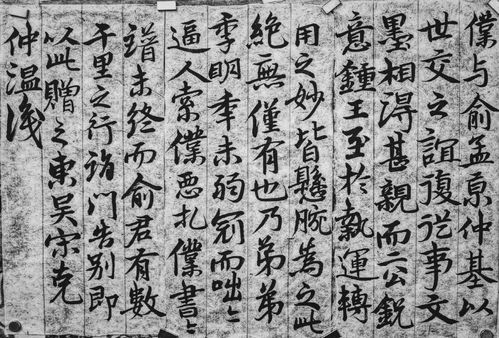 僕与俞孟京仲基以
世交之誼復從事文
墨相得甚親而二公銳
意鍾王至於執運轉
用之妙皆懸腕為之此
絕無僅有也乃弟弟
季明年未弱冠而咄々
逼人索僕惡札僕書々
譜未終而俞君有數
千里之行詣門告別即
以此贈之東吳宋克
仲溫識